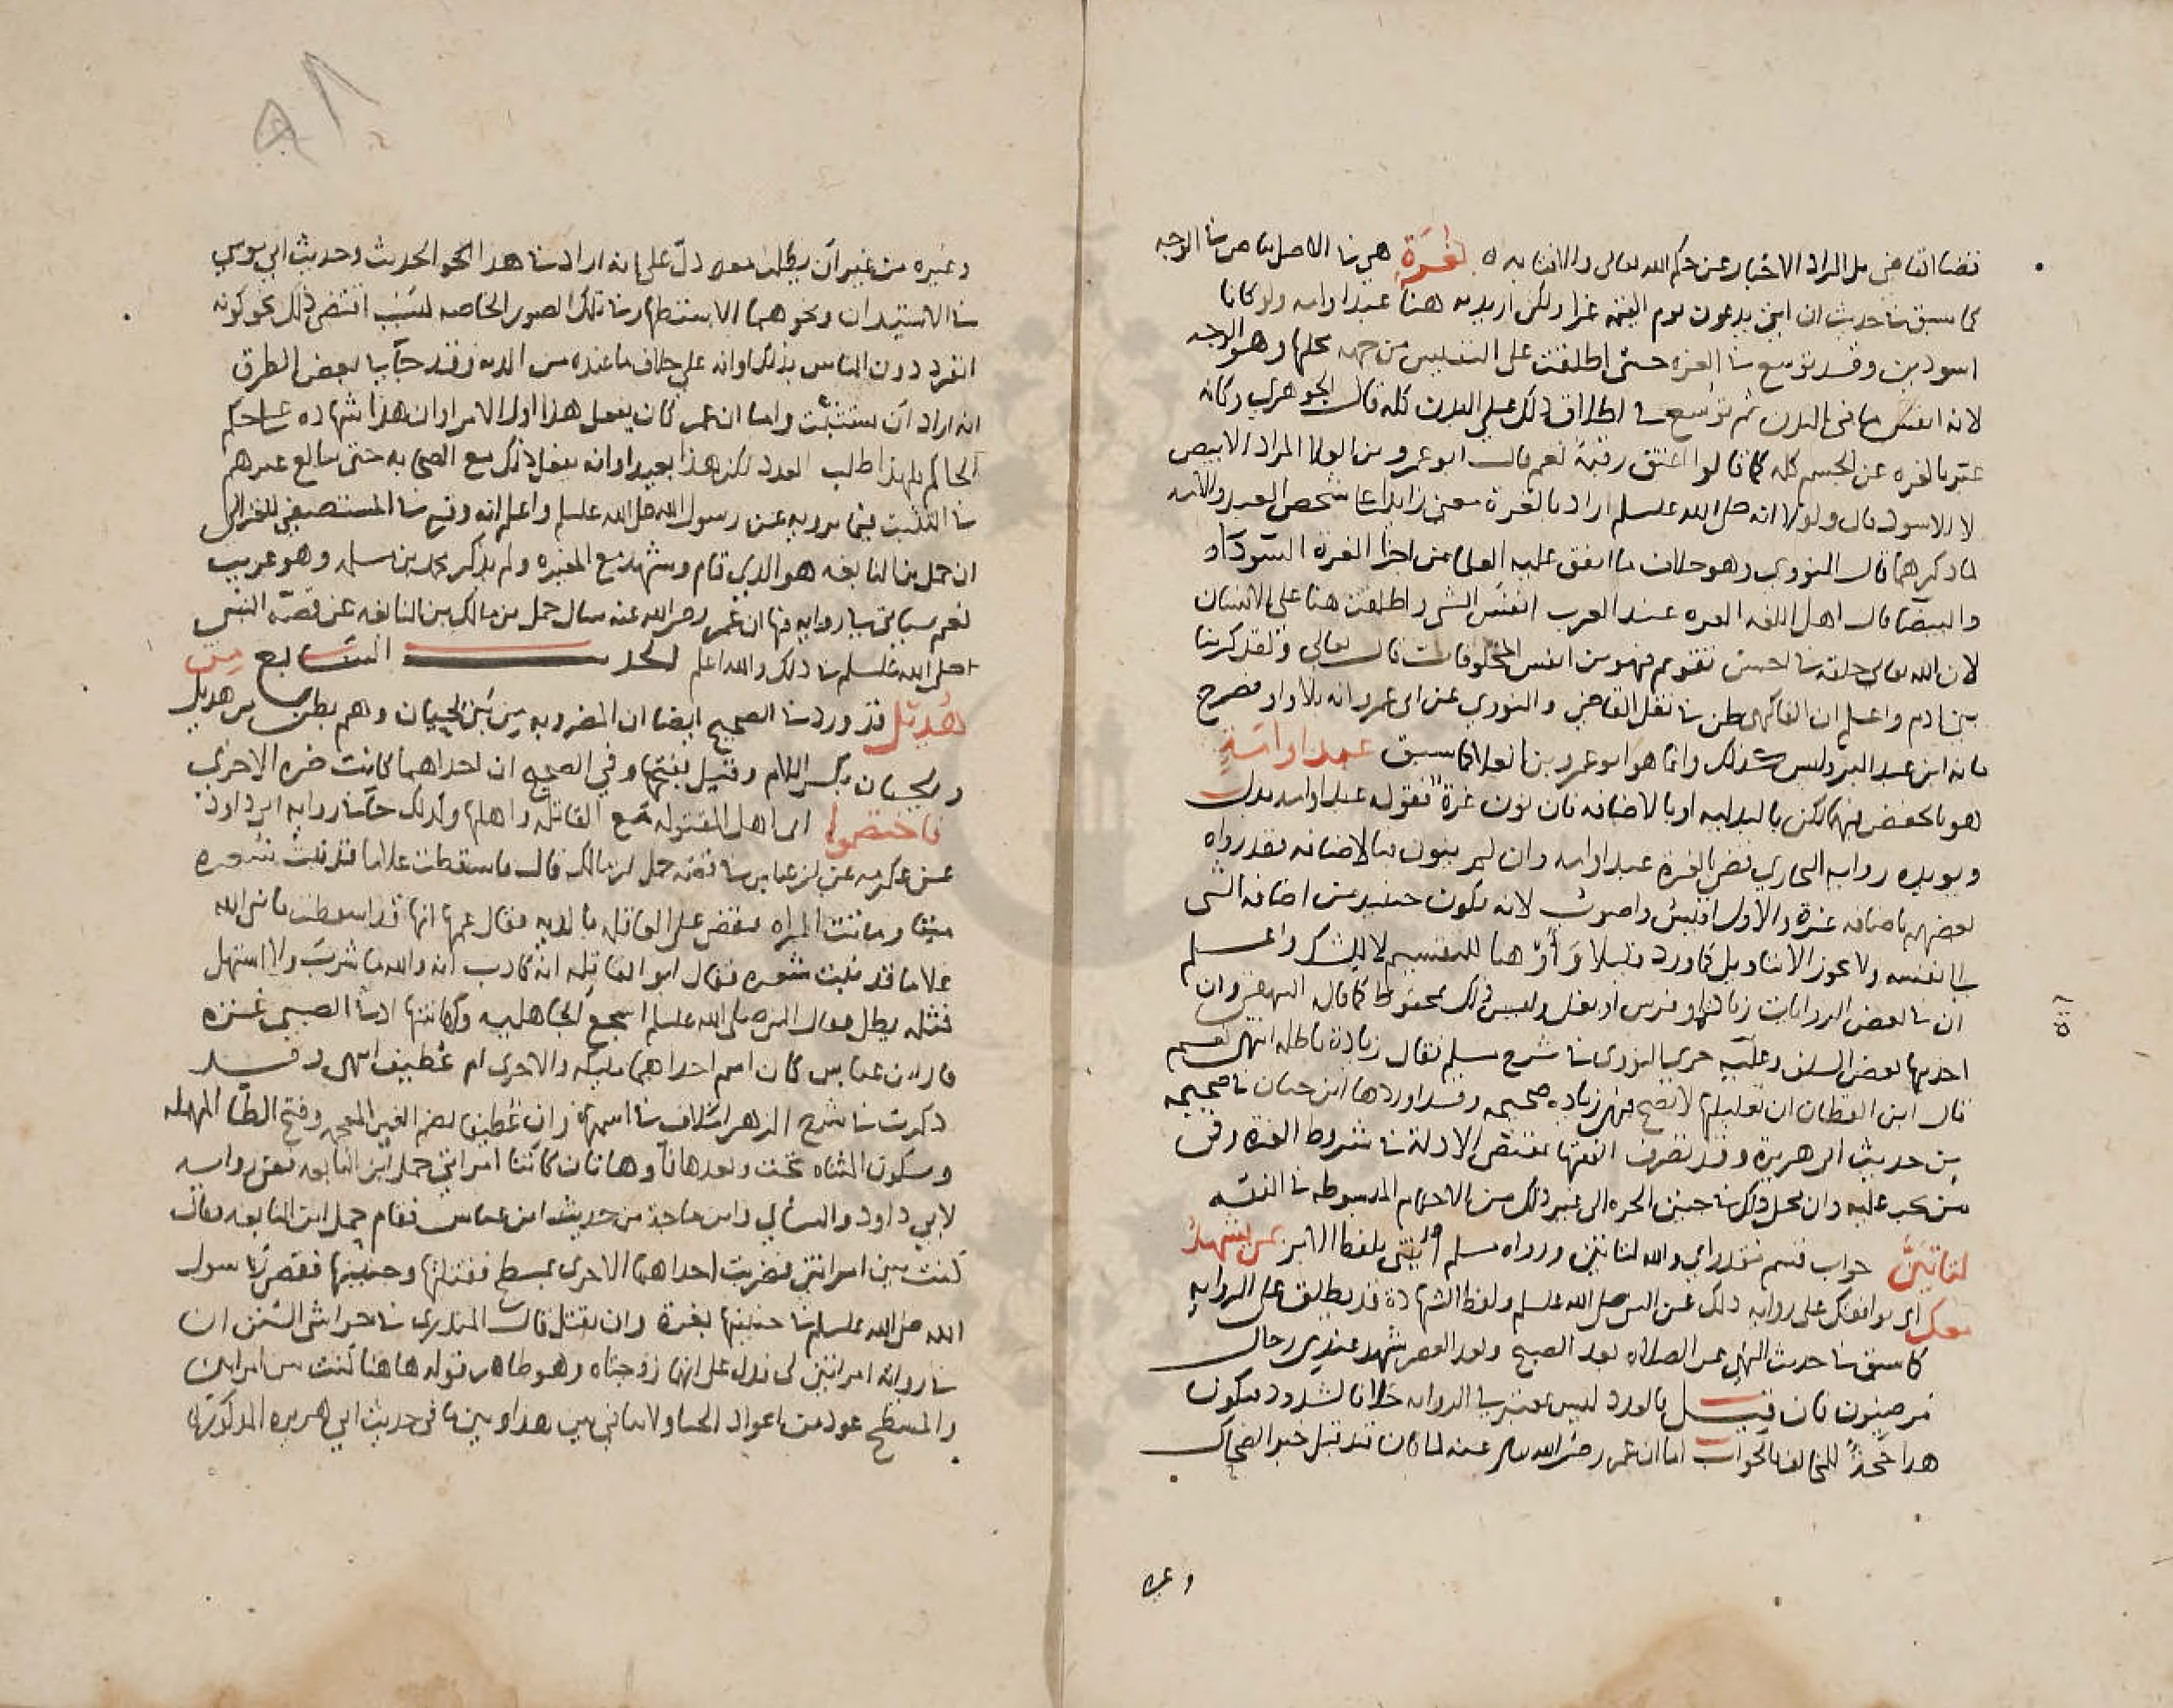 قضا القاضي بل المراد الاخبار عن حكم الله تعالى والافتا به بغرة هي في الاصل بياض في الوجه
كما سبق في حديث ان امتي يدعون يوم القيمة غرا ولكن اريد به هنا عبد او امه ولو كانا
اسودين وقد توسع في الغره حتى اطلقت على النفيس من جهه محلها وهو الوجه
لانه انفس ما في البدن ثم توسع في اطلاق ذلك على البدن كله قال الجوهري وكانه
عبر بالغره عن الجسم كله كما قالوا اعتق رقبة نعم قال ابو عمرو بن العلا المراد الابيض
لا الاسود قال ولولا انه صلى الله عليه وسلم اراد بالغرة معنى زايدا على شخص العبد والامه
لما ذكرهما قال النووي وهو خلاف ما اتفق عليه العلما من اجزا الغرة السودا
والبيضا قال اهل اللغه الغره عند العرب انفس الشي واطلقت هنا على الانسان
لان الله تعالى خلقه في احسن تقويم فهو من انفس المخلوقات قال تعالى ولقد كرمنا
بني ادم واعلم ان الفاكهي ظن في نقل القاضي والنووي عن ابي عمر وانه بلا واو فصرح
بانه ابن عبد البر وليس كذلك وانما هو ابو عمرو بن العلا كما سبق عبد او امة
هو بالخفض فيهما لكن بالبدليه او بالاضافه فان نون غرة فقوله عبد او امه بدل
ويويده روايه البخاري قضى بالغرة عبد او امه وان لم ينون فبالاضافه فقد رواه
بعضهم باضافه غرة والاول اقيس واصوب لانه يكون حينيذ من اضافه الشي
الى نفسه ولا يجوز الا بتاويل كما ورد قليلا وأو هنا للتقسيم لا للشك واعلم
ان في بعض الروايات زيادة او فرس او بغل وليس ذلك بمحفوظ كما قال البيهقي وان
اخذ بها بعض السلف وعليه جرى النووي في شرح مسلم فقال زيادة باطله انتهى نعم
قال ابن القطان ان تعليلها لا يصح فهي زياده صحيحه وقد اوردها ابن حبان في صحيحه
من حديث ابي هريرة وقد تصرف الفقها بمقتضى الادلة في شروط الغره وفي
من تجب عليه وان محل ذلك في جنين الحره الى غير ذلك من الاحكام المبسوطه في الفقه
لتاتين جواب قسم مقدر اي والله لتاتين ورواه مسلم ائتني بلفظ الامر بمن يشهد
معك اي يوافقك على روايه ذلك عن النبي صلى الله عليه وسلم ولفظ الشهادة قد يطلق على الروايه
كما سبق في حديث النهي عن الصلاه بعد الصبح وبعد العصر شهد عندي رجال
مرضيون فان قيل فالعدد ليس بمعتبر في الروايه خلافا لشذوذ فيكون
هذا حجة للمخالف فالجواب اما ان عمر رضي الله تعالى عنه لما كان قد قبل خبر الضحاك
وغيره
وغيره من غير ان يطلب معه دل على انه اراد في هذا النحو الحديث وحديث ابي موسى
في الاستيذان ونحوهما الاستظهار في تلك الصور الخاصه لسبب اقتضى ذلك نحو كونه
انفرد دون الناس بذلك او انه على خلاف ما عنده من الديه وقد جا في بعض الطرق
انه اراد ان يستثبت واما ان عمر كان يفعل هذا اول الامر او ان هذا شهاده على حكم
الحاكم فلهذا طلب العدد لكن هذا بعيد او انه يفعل ذلك مع الصحابه حتى يبالغ غيرهم
في التثبت فيما يرويه عن رسول الله صلى الله عليه وسلم واعلم انه وقع في المستصفى للغزالي
ان حمل بن النابغه هو الذي قام وشهد مع المغيره ولم يذكر محمد بن مسلمه وهو غريب
نعم سياتي في روايه فيها ان عمر رضي الله عنه سال حمل بن مالك بن النابغه عن قصة النبي
صلى الله عليه وسلم في ذلك والله اعلم الحديث السابع من
هذيل قد ورد في الصحيح ايضا ان المضروبه من بني لحيان وهم بطن من هذيل
ولحيان بكسر اللام وقيل بفتحها وفي الصحيح ان احداهما كانت ضره الاخرى
فاختصموا اي اهل المقتوله مع القاتله واهلها ولذلك جا في روايه ابي داود
عن عكرمه عن ابن عباس في قصه حمل بن مالك قال فاسقطت غلاما قد نبت شعره
ميتا وماتت المراه فقضى على العاقله بالديه فقال عمها انها قد اسقطت يا نبي الله
غلاما قد نبت شعره فقال ابو القاتله انه كاذب انه والله ما شرب ولا استهل
فمثله يطل فقال النبي صلى الله عليه وسلم اسجع الجاهليه وكهانتها اد في الصبي غره
قال ابن عباس كان اسم احداهما مليكه والاخرى ام غطيف انتهى وقد
ذكرت في شرح الزهر اختلاف في اسمها وان غطيف بضم الغين المعجمه وفتح الطا المهمله
وسكون المثناه تحت وبعدها فا وهاتان كانتا امراتي حمل ابن النابغه ففي روايه
لابي داود والنساي وابن ماجه من حديث ابن عباس فقام حمل ابن النابغه فقال
كنت بين امراتين فضربت احداهما الاخرى بمسطح فقتلتها وجنينها فقضى رسول
الله صلى الله عليه وسلم في جنينها بغرة وان تقتل قال المنذري في حواشي السنن ان
في روايه امراتين لي فدل على انهما زوجتاه وهو ظاهر قوله هاهنا كنت بين امراتين
والمسطح عود من اعواد الخبا ولا تنافي بين هذا وبين ما في حديث ابي هريره المذكور هنا